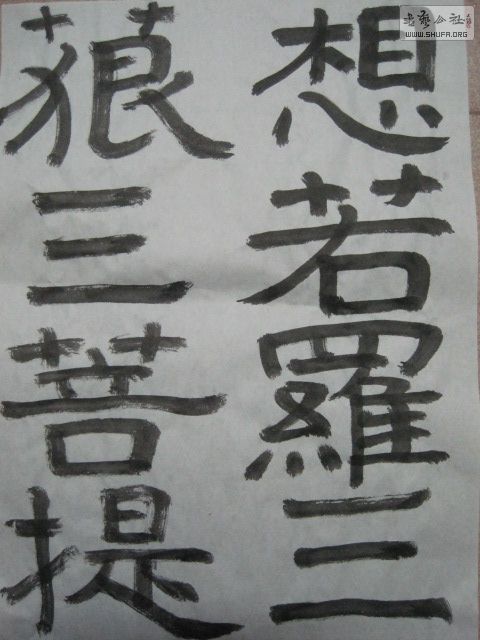 想若羅三
藐三菩提
書藝公社
WWW.SHUFA.ORG